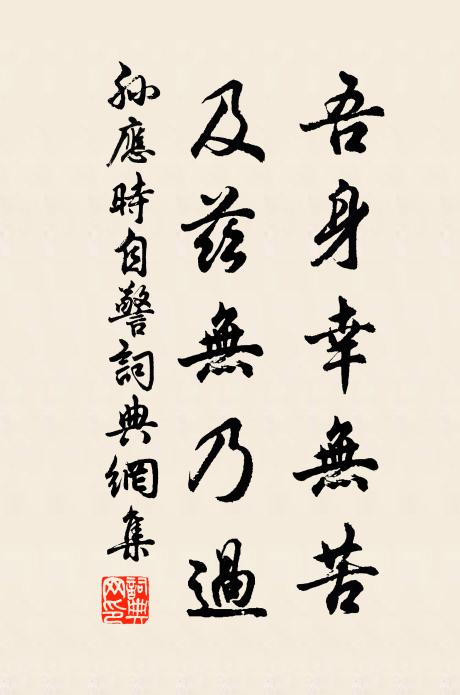 吾身幸無苦
及茲無乃過
孫應時自警詞典網集
詞典網印